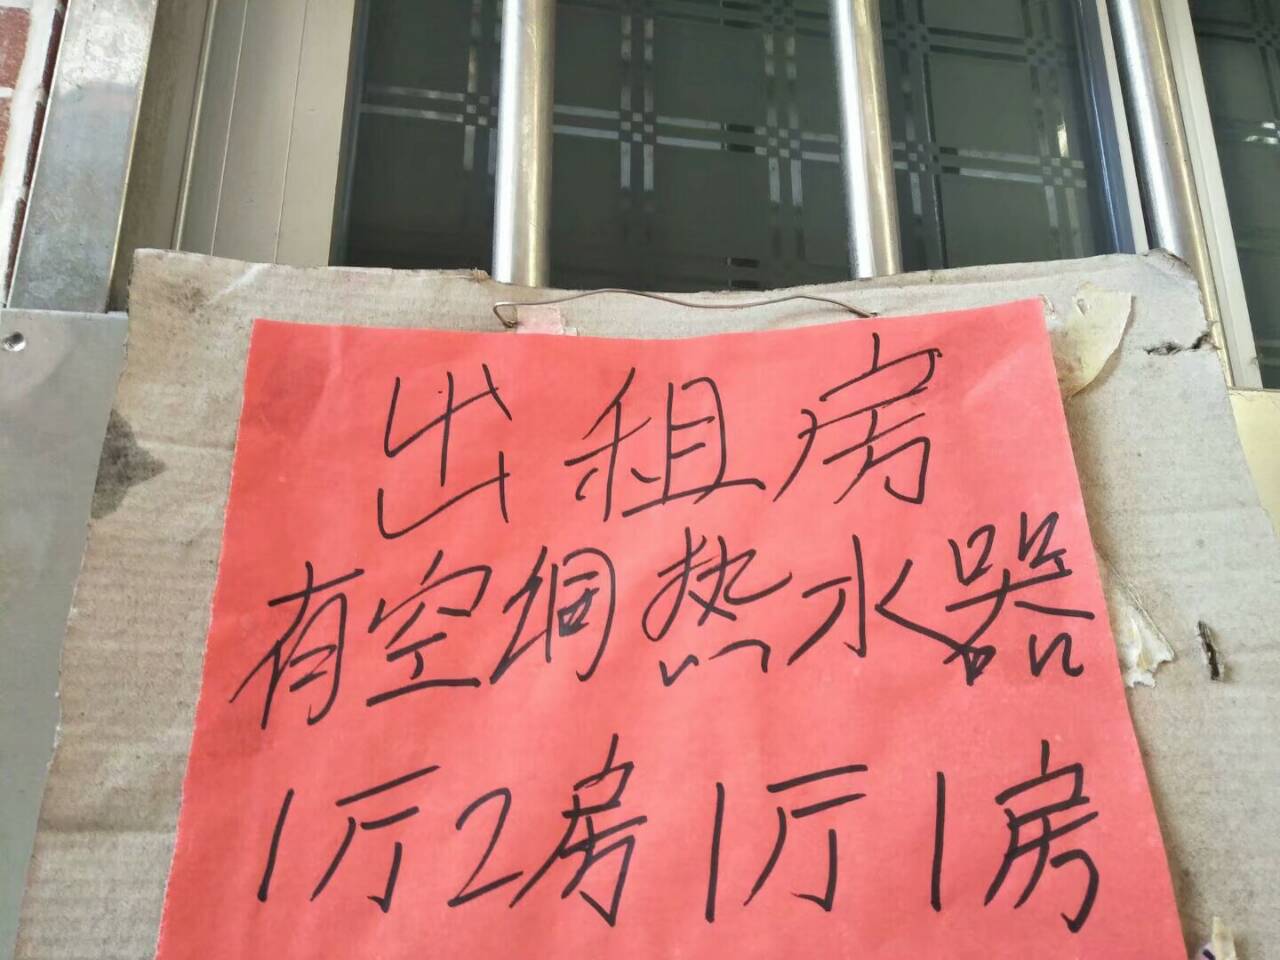 出租房
有空调热水器
1厅2房1厅1房